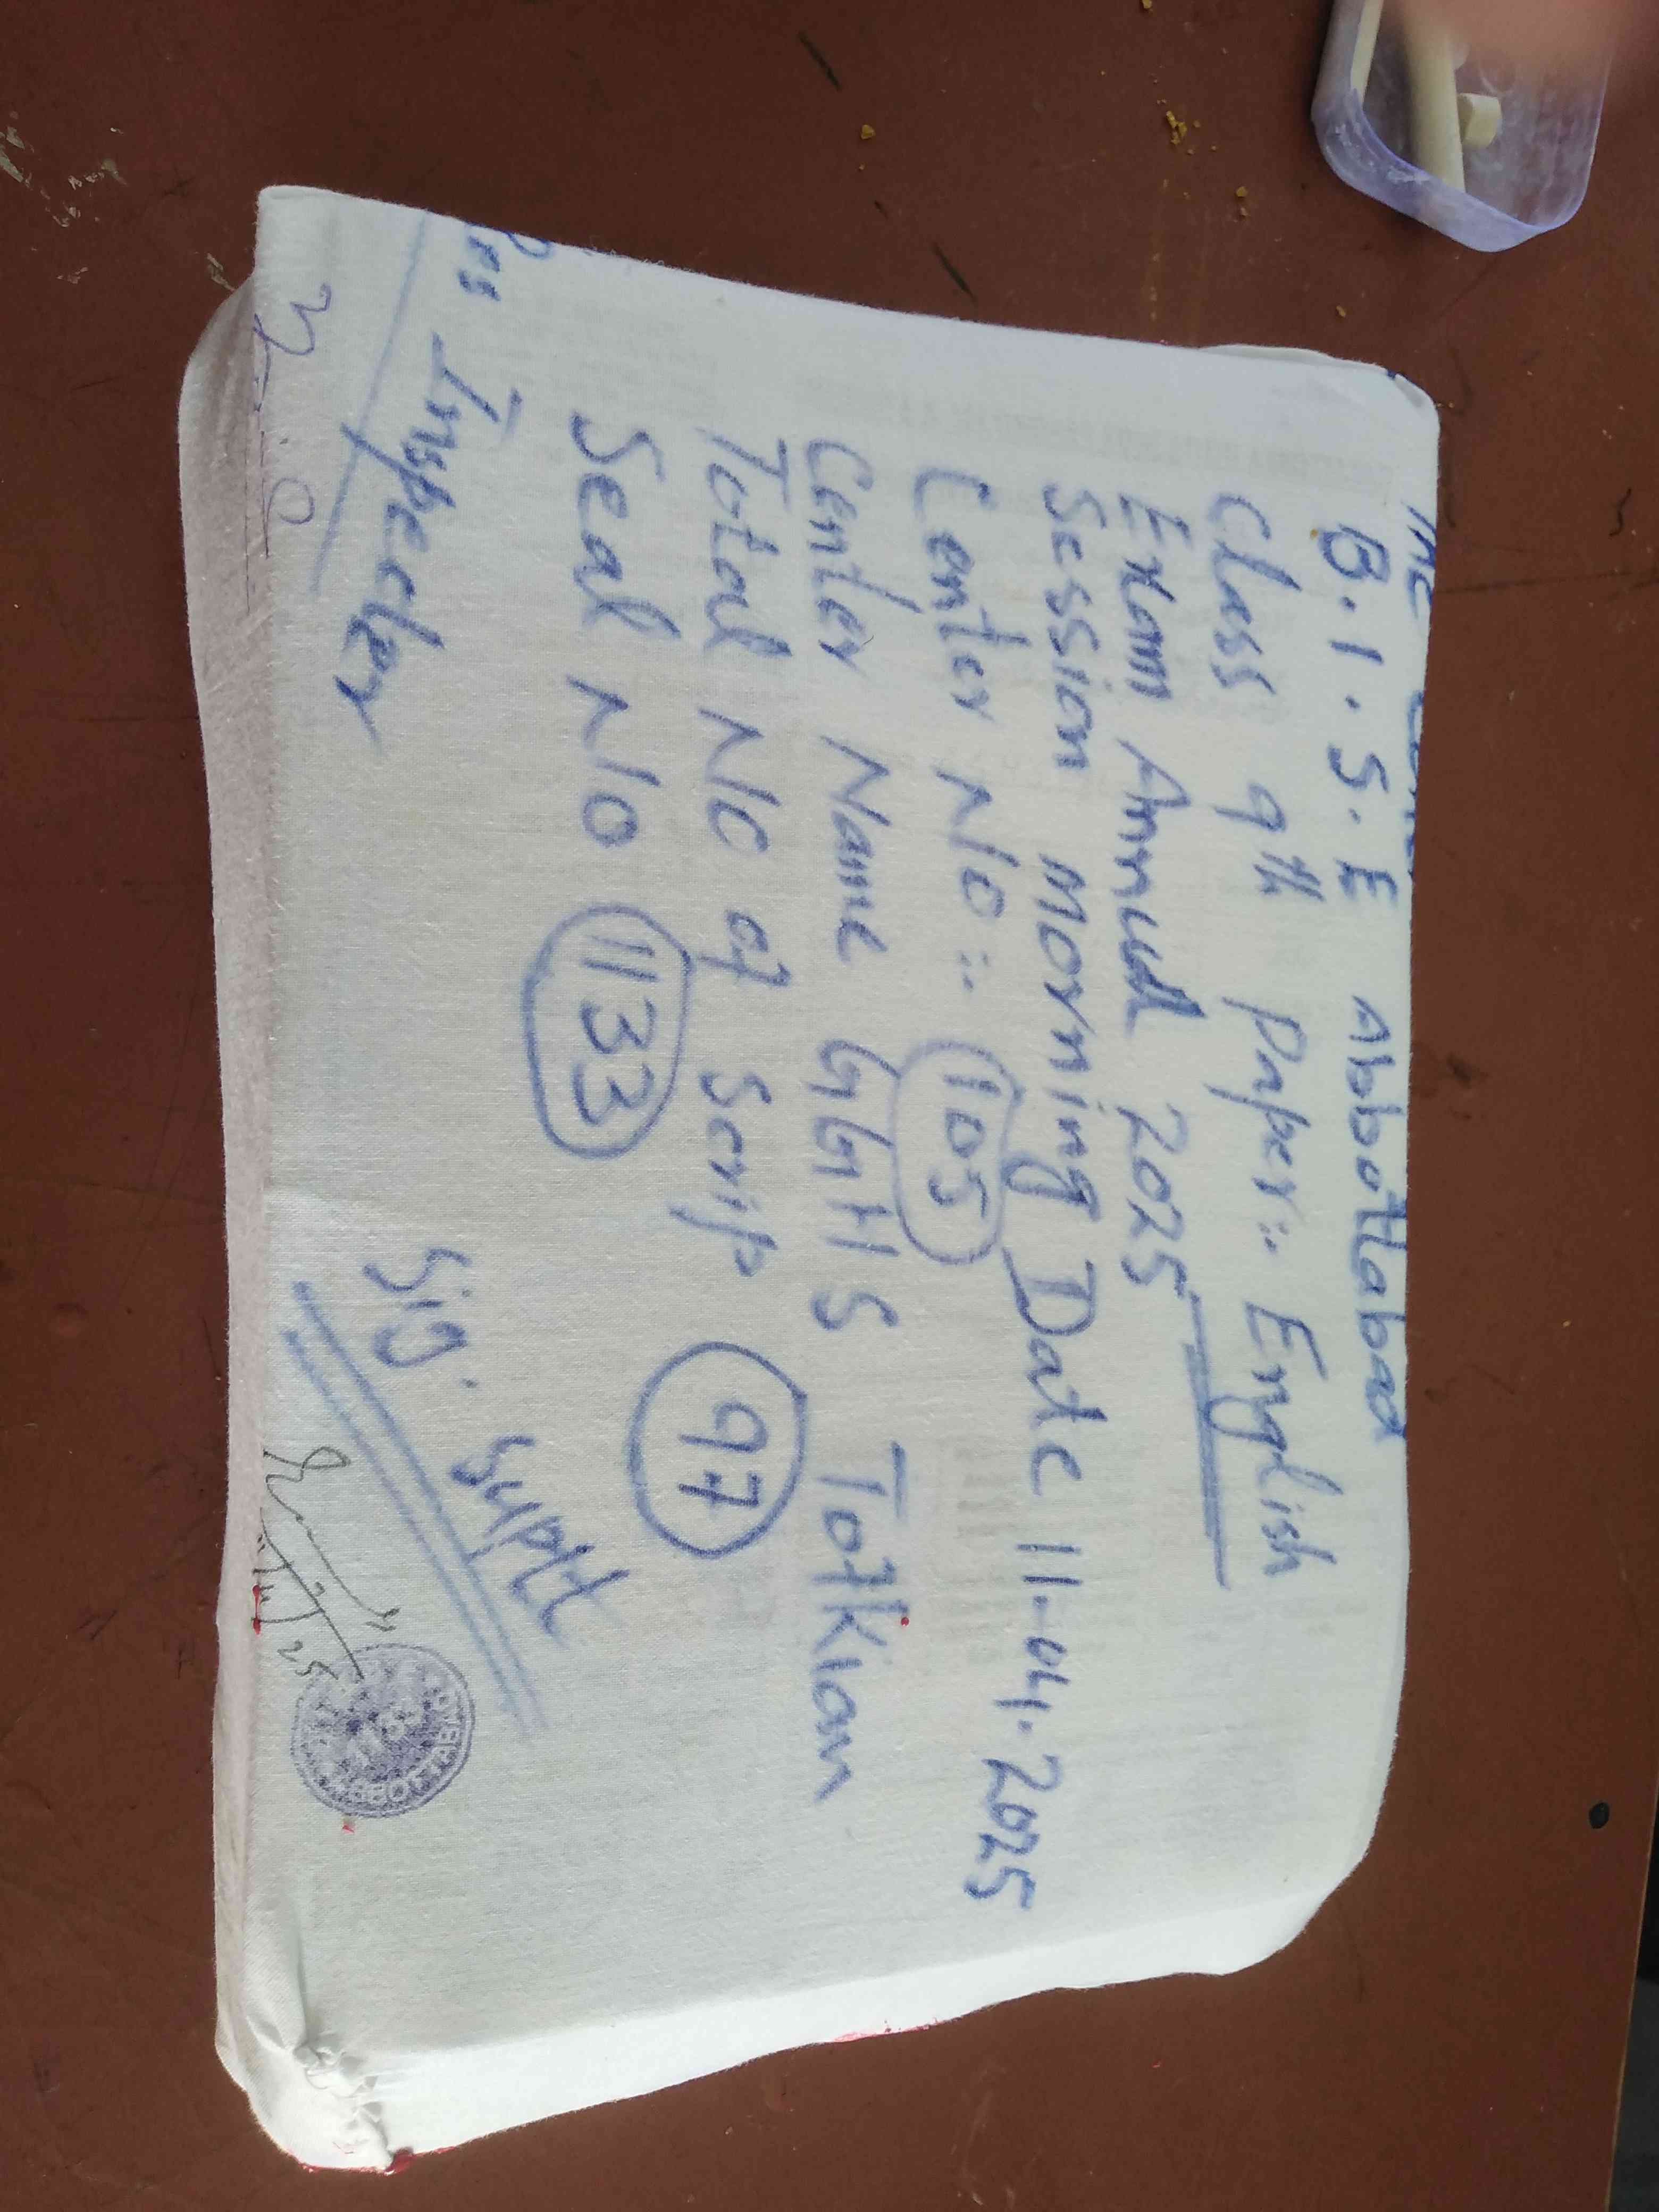 B.I.S.E Abbottabad
Class 9th Paper:- English
Exam Annual 2025
Session Morning Date 11-04-2025
Center N/o:- 1105
Center Name GGHS Totkian
Total N/o of Scrip 97
Seal N/o 1133
Sig. Supdt
Res Inspecter
1133
ABBOTTABAD